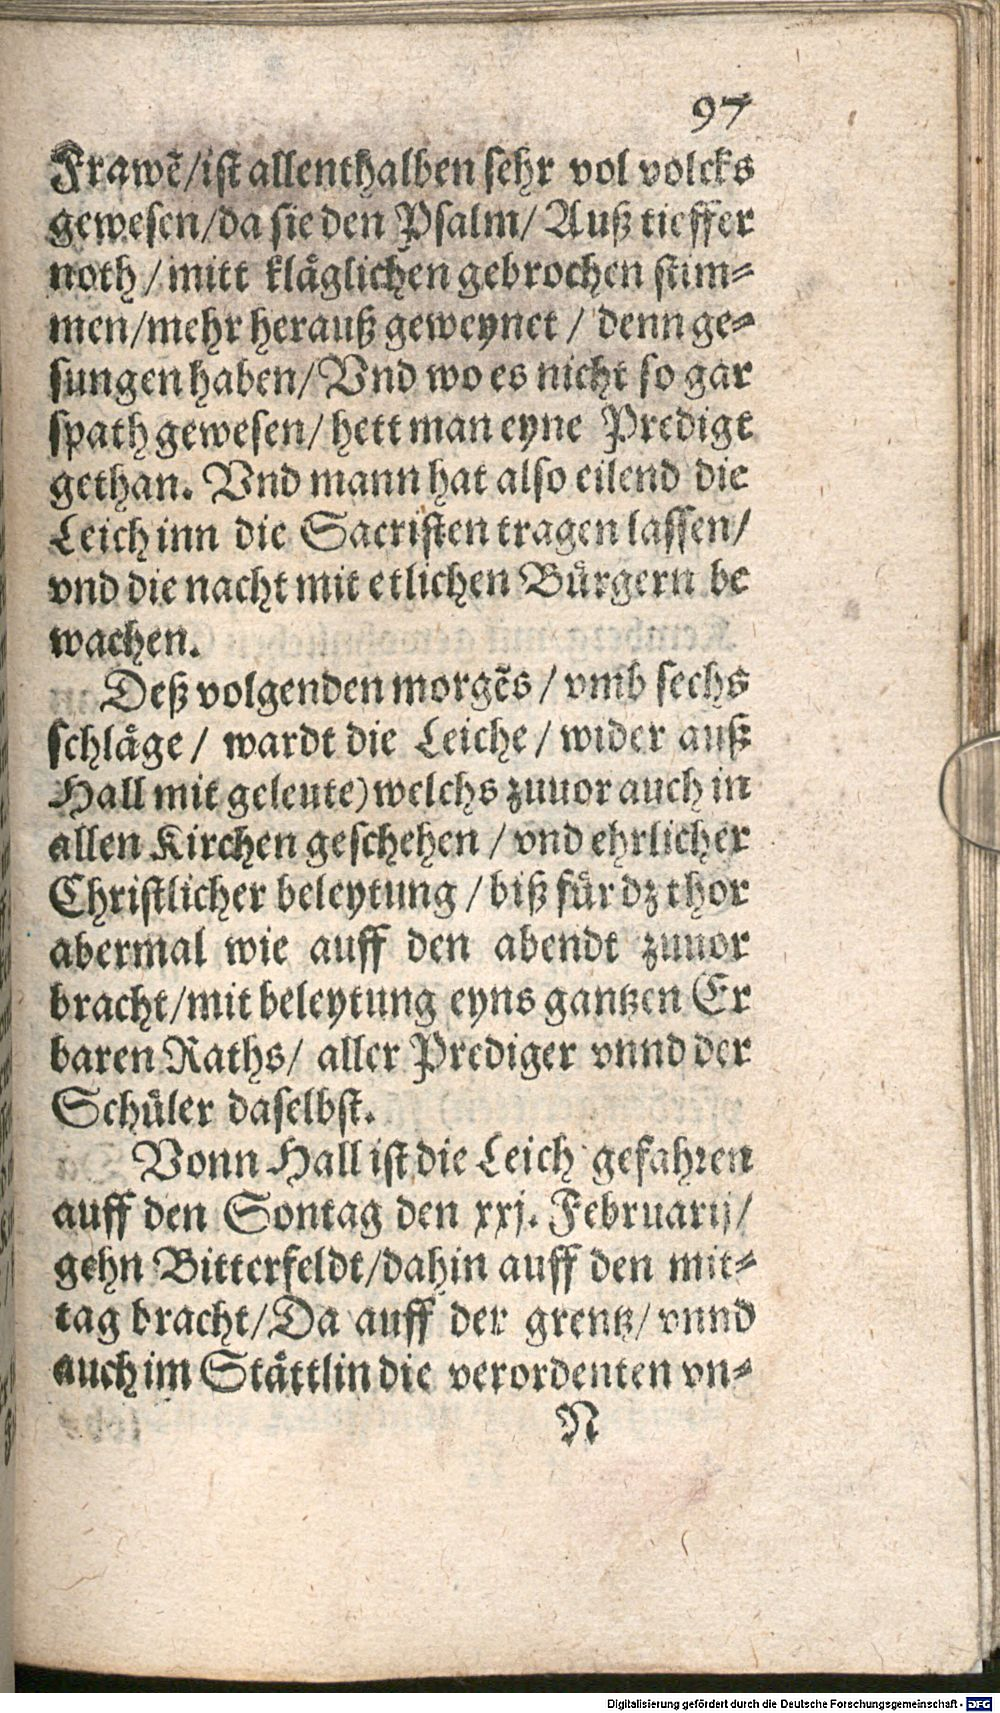 97
Frawẽ/ist allenthalben sehr vol volcks
gewesen/da sie den Psalm/ Auß tieffer
noth/mitt kläglichen gebrochen stim-
men/mehr herauß geweynet / denn ge-
sungen haben/ Vnd wo es nicht so gar
spath gewesen/ hett man eyne Predigt
gethan. Vnd mann hat also eilend die
Leich inn die Sacristen tragen lassen/
vnd die nacht mit etlichen Bürgern be
wachen.
Deß volgenden morgẽs / vmb sechs
schläge / wardt die Leiche / wider auß
Hall mit geleute) welchs zuuor auch in
allen Kirchen geschehen / vnd ehrlicher
Christlicher beleytung / biß für dz thor
abermal wie auff den abendt zuuor
bracht/mit beleytung eyns gantzen Er
baren Raths/ aller Prediger vnnd der
Schüler daselbst.
Vonn Hall ist die Leich gefahren
auff den Sontag den xxj. Februarij/
gehn Bitterfeldt/dahin auff den mit-
tag bracht/Da auff der grentz/ vnnd
auch im Stättlin die verordenten vn-
N
Digitalisierung gefördert durch die Deutsche Forschungsgemeinschaft - DFG